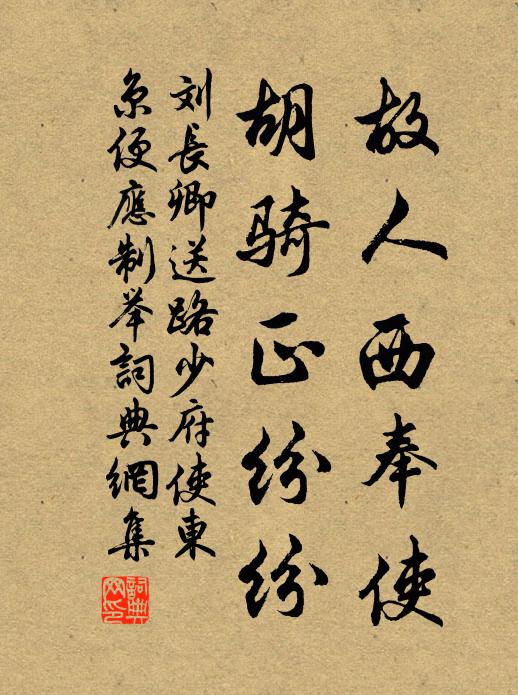 故人西奉使
胡骑正纷纷
刘長卿送路少府使東
京便應制举詞典網集
詞典网印